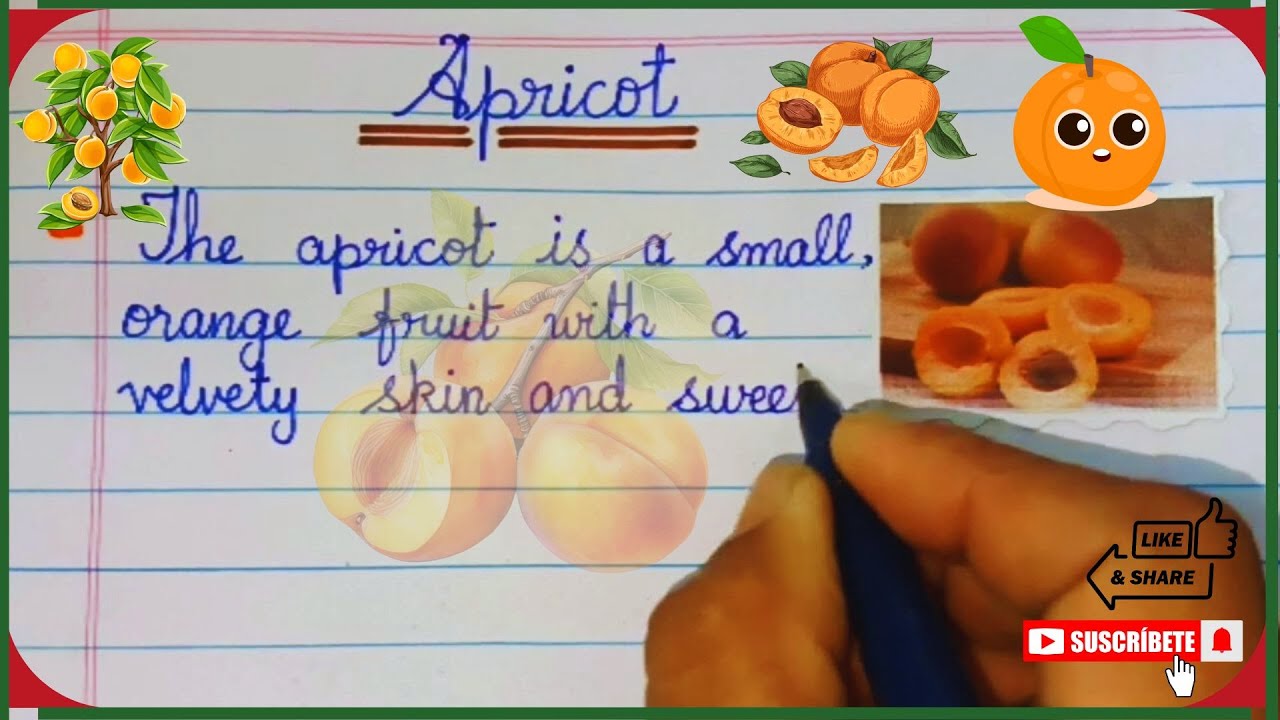 Apricot
The apricot is a small,
orange fruit with a
velvety skin and swee
LIKE
& SHARE
SUSCRÍBETE